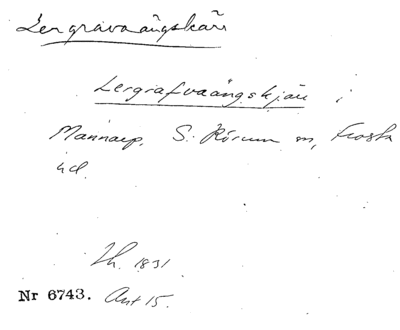 Lergravaängskärr
Lergrafvaängskjärr i
Mannarp, S. Rörum sn, Frosta
hd.
Lh. 1831
Nr 6743. Akt 15.